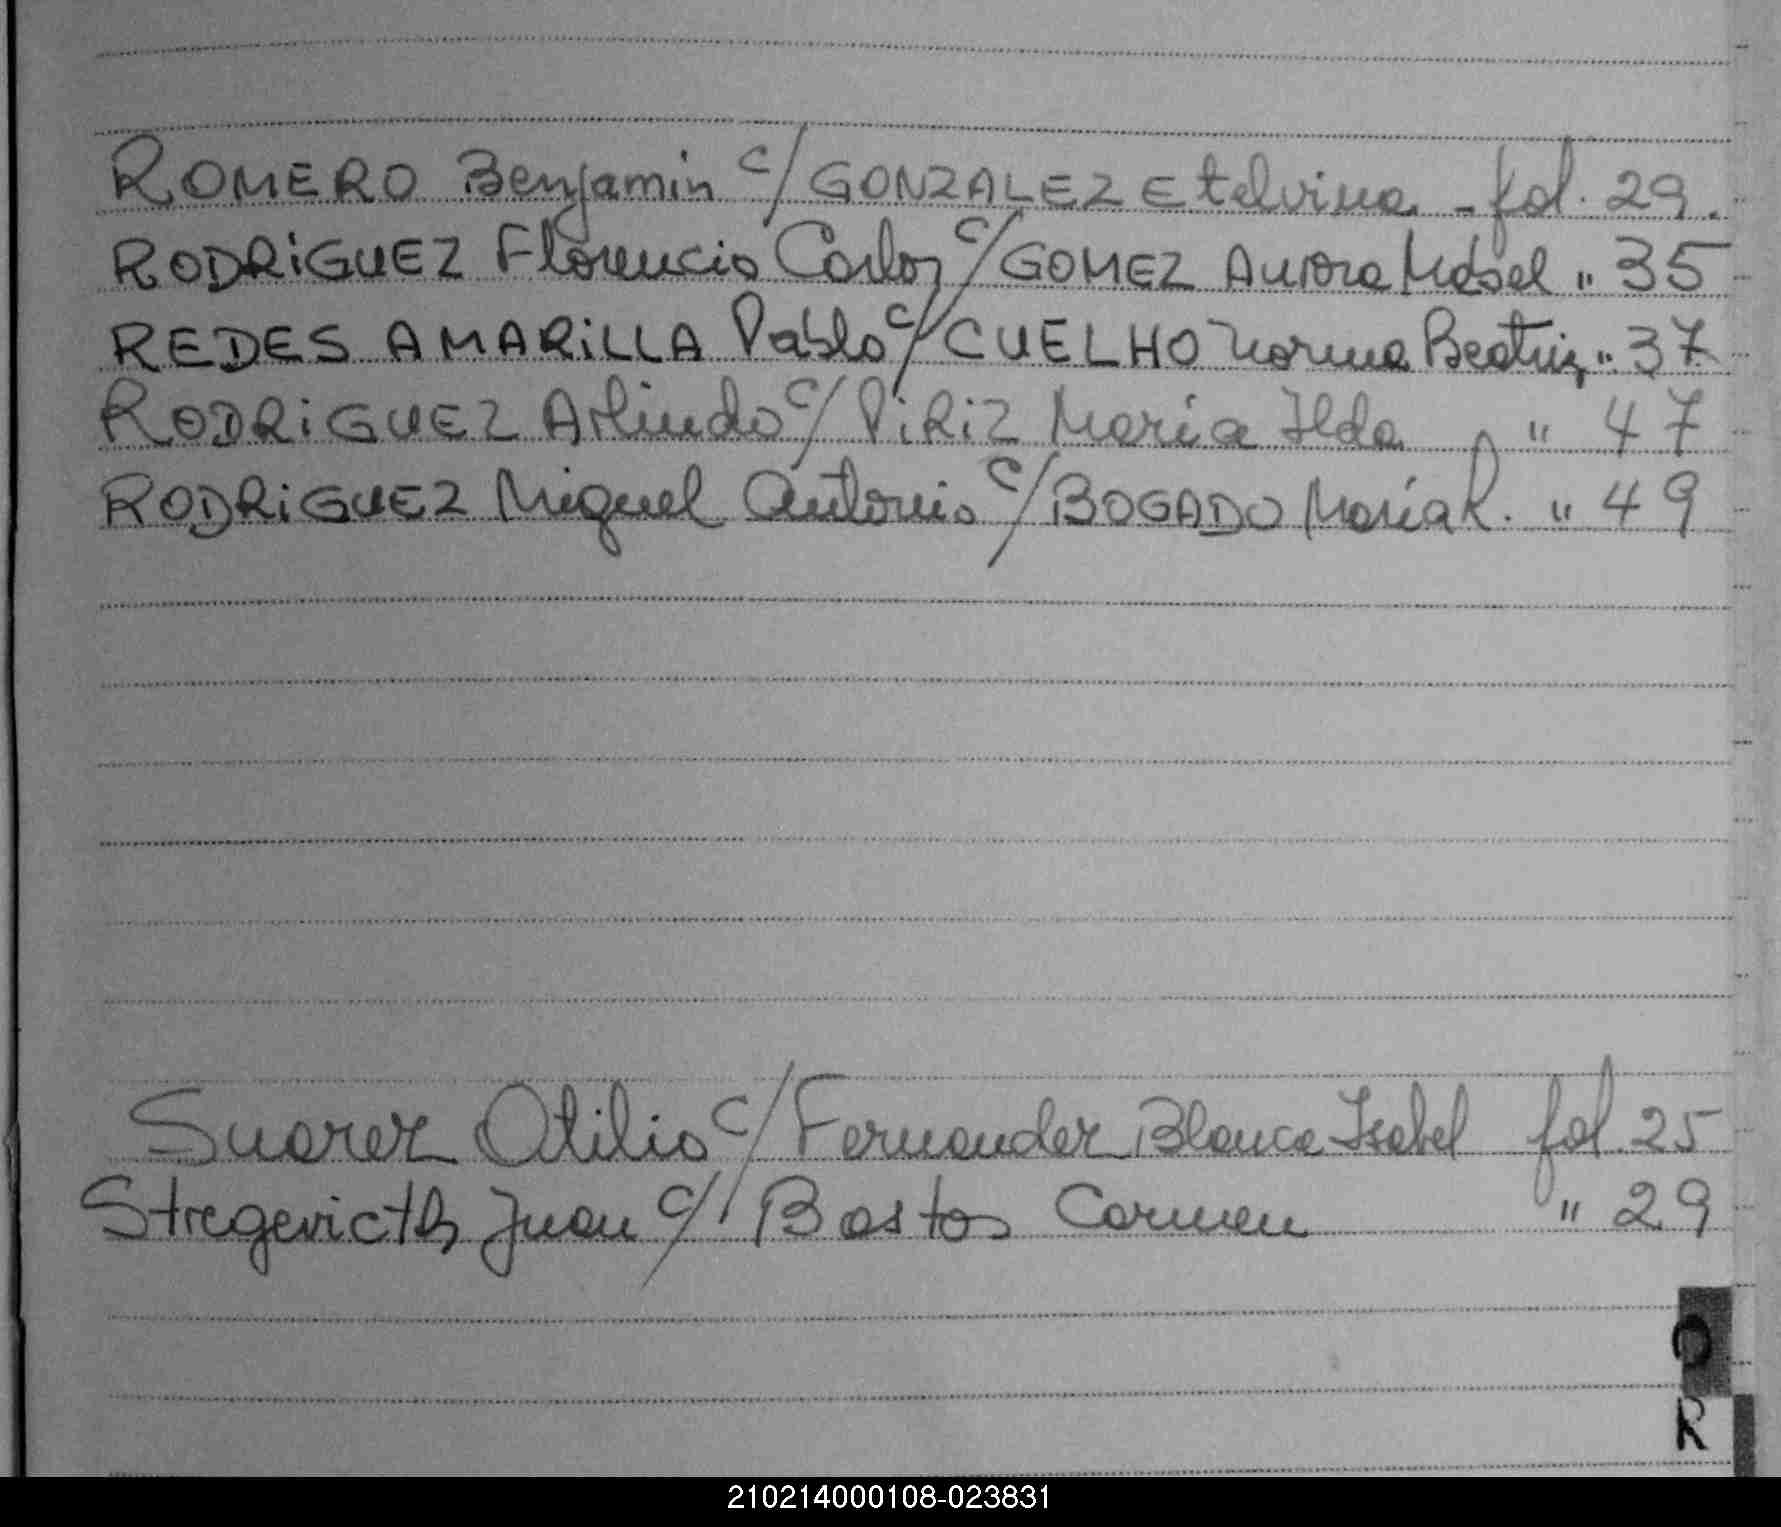 ROMERO Benjamin c/ GONZALEZ Etelvina - fol. 29.
RODRiGUEZ Florencio Carlos c/ GOMEZ Aurora Mabel " 35
REDES AMARiLLA Pablo c/ CUELHO Norma Beatriz " 37
RODRiGUEZ Arlindo c/ PiRiZ María Ilda " 47
RODRiGUEZ Miguel Antonio c/ BOGADO María R. " 49
Suarez Otilio c/ Fernandez Blanca Isabel fol. 25
Stregevicth Juan c/ Bastos Carmen " 29
R
210214000108-023831